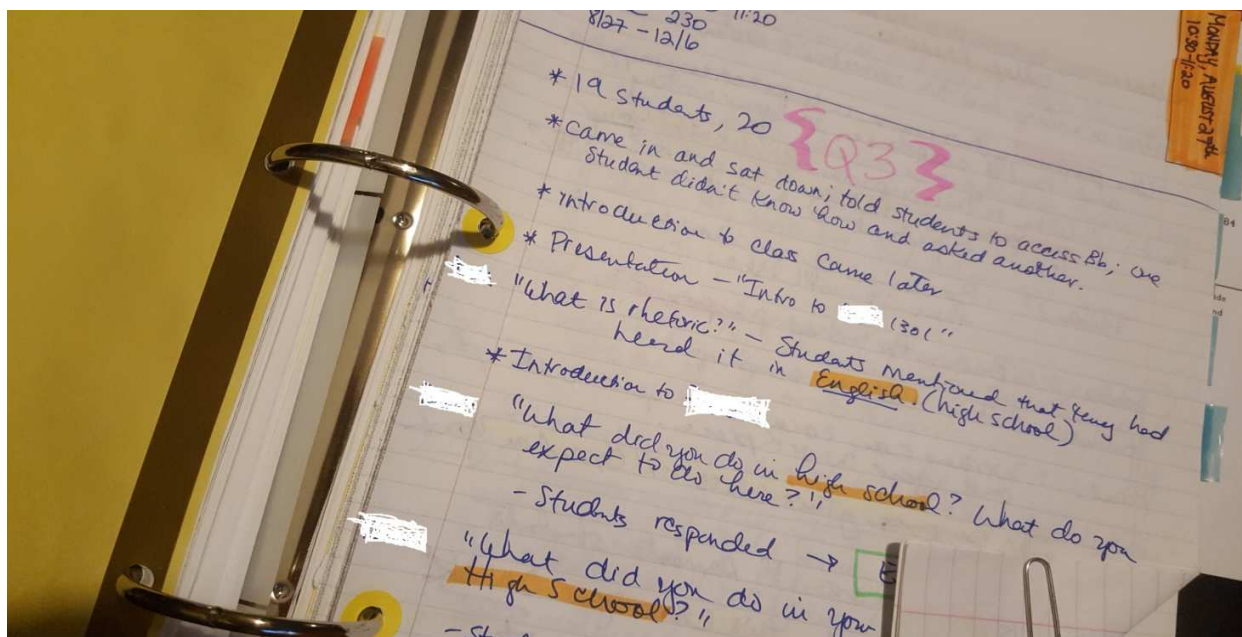 11:20
230
8/27 - 12/6
MONDAY, AUGUST 27th
10:30-11:20
* 19 students, 20 {Q3}
* came in and sat down; told students to access Bb; one
student didn't know how and asked another.
* introduction to class came later
* Presentation - "Intro to 1301"
"What is rhetoric?" - Students mentioned that they had
heard it in English. (high school)
* Introduction to
"What did you do in high school? What do you
expect to do here?"
- Students responded →
"What did you do in your
High School?"